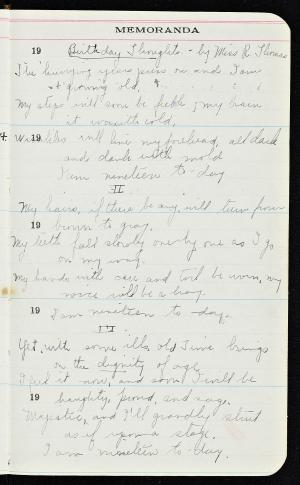 MEMORANDA
19 Birthday Thoughts - by Miss R. Thomas
The hurrying years press on and I am
growing old,
My steps will soon be feeble, my brain
it
19 Wrinkles will line my forehead, all dark
and dank with mold
I am nineteen to-day
II
My hairs, if there be any, will turn from
19 brown to gray.
My teeth fall slowly one by one as I go
on my way.
My hands with care and toil be worn, my
voice will be a bray.
19 I am nineteen to-day.
III
Yet, with some ills, old Time brings
on the dignity of age
I feel it now, and soon I will be
19 haughty, proud, and sage.
Majestic, and I'll grandly strut
as if upon a stage.
I am nineteen to-day.